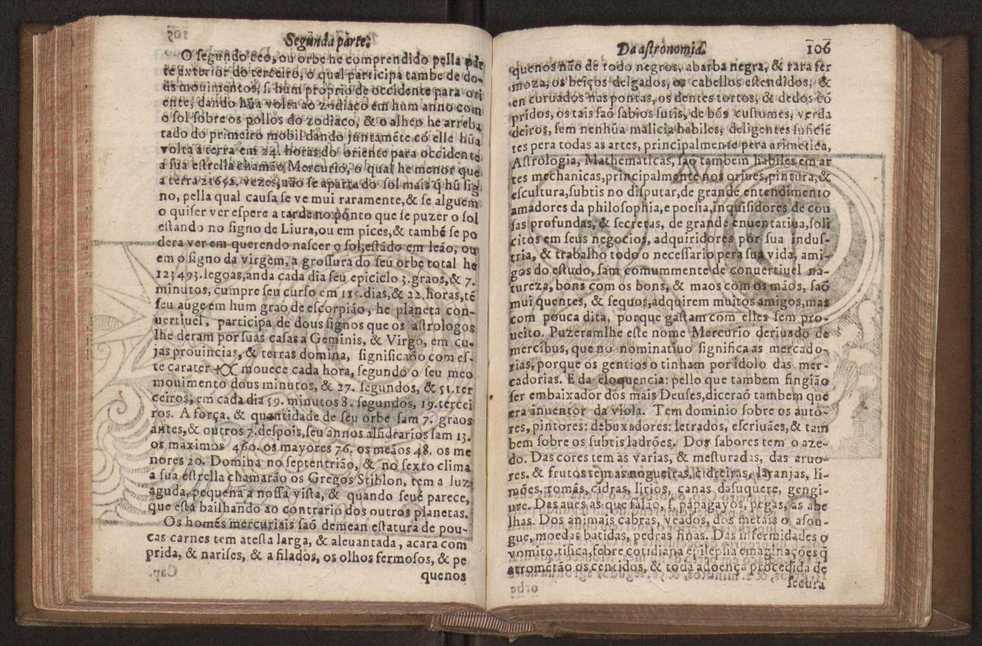 Segunda parte.
O segundo ceo, ou orbe he comprendido pella par
te exterior do terceiro, o qual participa tambe de do-
us mouimentos, s. hum proprio de occidente para ori
ente, dando hũa volta ao zodiaco em hum anno com
o sol sobre os pollos do zodiaco, & o alheo he arreba
tado do primeiro mobil dando juntamẽte cõ elle hũa
volta a terra em 24. horas do oriente para occidente
a sua estrella chamão Mercurio, o qual he menor que
a terra 21652. vezes, não se aparta do sol mais q̃ hũ sig
no, pella qual causa se ve mui raramente, & se alguem
o quiser ver espere a tarde no põnto que se puzer o sol
estando no signo de Liura, ou em pices, & tambẽ se po
dera ver em querendo nascer o sol, estãdo em leão, ou
em o signo da virgem, a grossura do seu orbe total he
123493. legoas, anda cada dia seu epiciclo 3. graos, & 7.
minutos, cumpre seu curso em dias, & 22. horas, tẽ
seu auge em hum grao de escorpião, he planeta con-
uertiuel, participa de dous signos que os astrologos
lhe deram por suas casas a Geminis, & Virgo, em cu-
jas prouincias, & terras domina, significaõno com es-
te carater mouece cada hora, segundo o seu meo
mouimento dous minutos, & 27. segundos, & 51. ter
ceiros, em cada dia 59. minutos 8. segundos, 19. tercei
ros. A força, & quantidade de seu orbe sam 7. graos
antes, & outros 7. despois, seu annos alfidrarios sam 13.
os maximos 460. os mayores 76. os meãos 48. os me
nores 20. Domina no septentrião, & no sexto clima
a sua estrella chamarão os Gregos Stiblon, tem a luz
aguda, pequena a nossa vista, & quando seuẽ parece,
que està bailhando ao contrario dos outros planetas.
Os homẽs mercuriais saõ demean estatura de pou-
cas carnes tem atesta larga, & aleuantada, acara com
prida, & narises, & afilados, os olhos fermosos, & pe
quenos
Da astronomia. 106
quenos não de todo negros, abarba negra, & rara fer
moza, os beiços delgados, os cabellos estendidos, &
en curuados nas pontas, os dentes tortos, & dedos cõ
pridos, os tais saõ sabios sutis, de bõs custumes, verda
deiros, sem nenhũa malicia habiles, deligentes suficiẽ
tes pera todas as artes, principalmente pera arimetica,
Astrologia, Mathematicas, saõ tambem habiles em ar
tes mechanicas, principalmente nos oriues, pintura, &
escultura, subtis no disputar, de grande entendimento
amadores da philosophia, e poesia, Inquisidores de cou
sas profundas, & secretas, de grande enuentatiua, soli
citos em seus negocios, adquiridores por sua indus-
tria, & trabalho todo o necessario pera sua vida, ami-
gos do estudo, sam comummente de conuertiuel na-
tureza, bons com os bons, & maos com os mãos, saõ
mui quentes, & sequos, adquirem muitos amigos, mas
com pouca dita, porque gastam com elles sem pro-
ueito. Puzeramlhe este nome Mercurio deriuado de
mercibus, que no nominatiuo significa as mercado-
rias, porque os gentios o tinham por idolo das mer-
cadorias. E da eloquencia: pello que tambem fingião
ser embaixador dos mais Deuses, diceraõ tambem que
era inuentor da viola. Tem dominio sobre os auto-
res, pintores: debuxadores: letrados, escriuães, & tam
bem sobre os subtis ladrões. Dos sabores tem o aze-
do. Das cores tem as varias, & mesturadas, das aruo-
res, & frutos tem as nogueiras, cidreiras, laranjas, li-
mões, romãs, cidras, lirios, canas dasuquere, gengi-
ure. Das aues as que falão, s. papagayos, pegas, as abe
lhas. Dos animais cabras, veados, dos metais o asou-
gue, moedas batidas, pedras finas. Das infermidades o
vomito, tisica, febre cotidiana epilepsia emaginações q̃
atromẽtão os sentidos, & toda a doença procedida de
secura